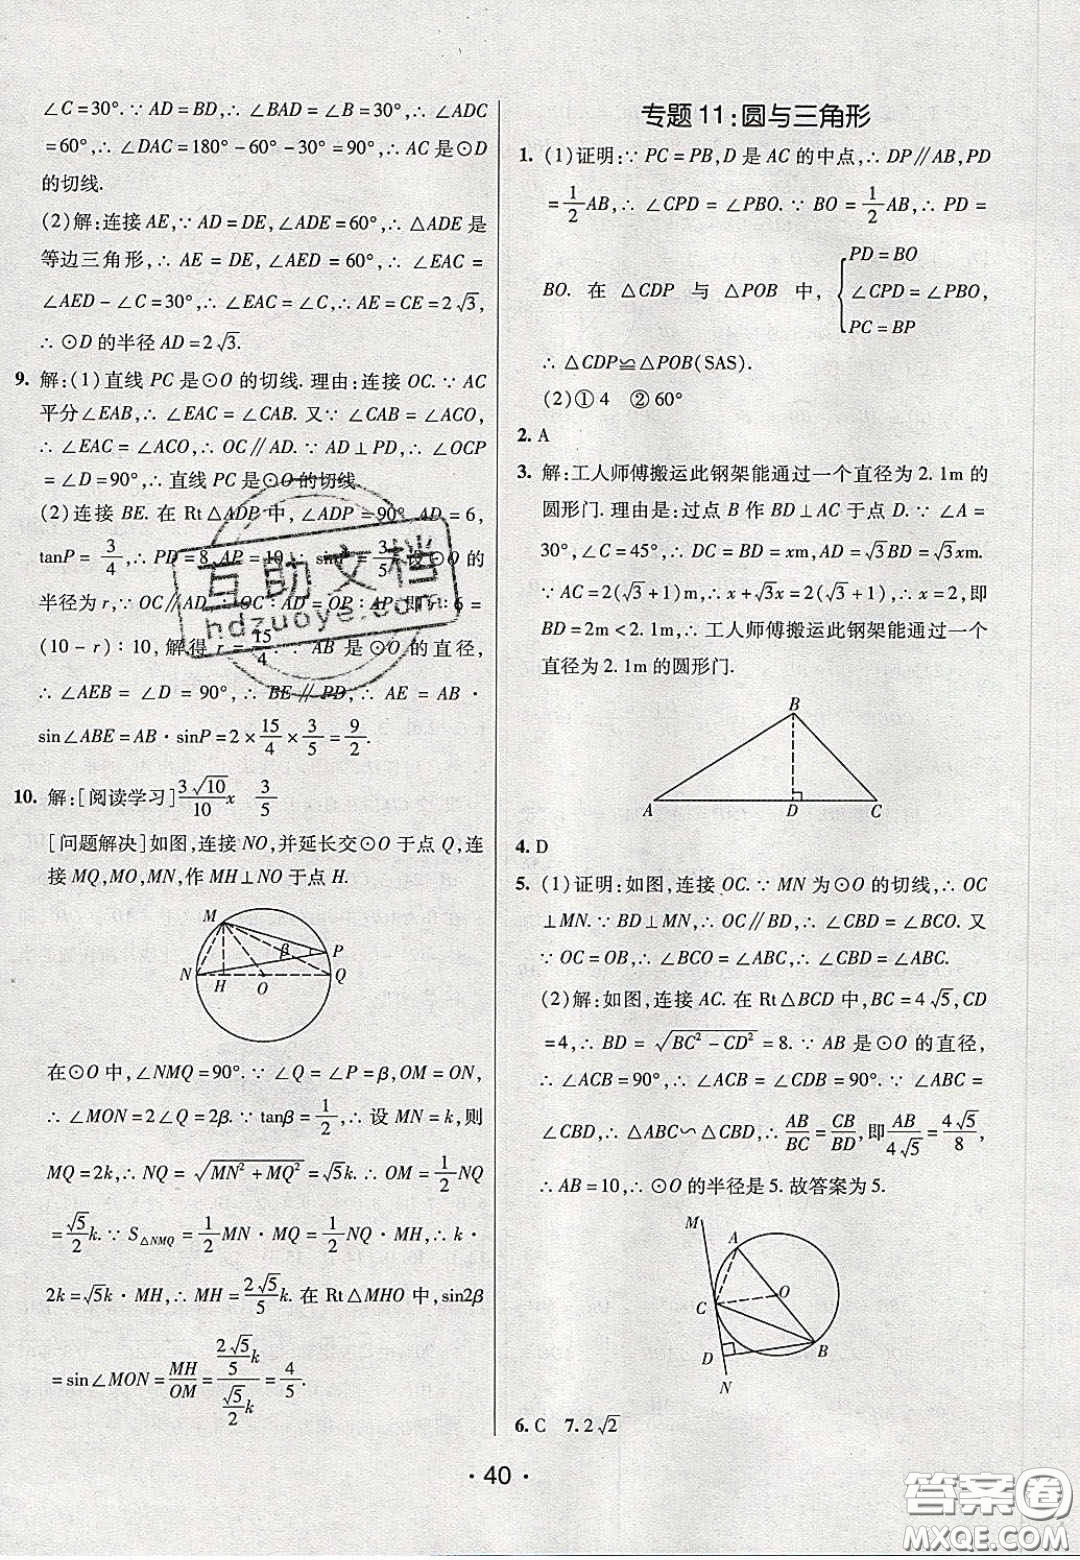 ∠C=30°.∵AD=BD,∴∠BAD=∠B=30°,∴∠ADC
=60°,∴∠DAC=180°-60°-30°=90°,∴AC是⊙D
的切线.
(2)解:连接AE,∵AD=DE,∠ADE=60°,∴△ADE是
等边三角形,∴AE=DE,∠AED=60°,∴∠EAC=
∠AED-∠C=30°,∴∠EAC=∠C,∴AE=CE=2√3,
∴⊙D的半径AD=2√3.
9. 解:(1)直线PC是⊙O的切线.理由:连接OC.∵AC
平分∠EAB,∴∠EAC=∠CAB.又∵∠CAB=∠ACO,
∴∠EAC=∠ACO,∴OC∥AD.∵AD⊥PD,∴∠OCP
=∠D=90°,∴直线PC是⊙O的切线.
(2)连接BE.在Rt△ADP中,∠ADP=90°,AD=6,
tanP=3/4,∴PD=8,AP=10,∴sinP=3/5.设⊙O的
半径为r,∵OC∥AD,∴OC∶AD=OP∶AP,即r∶6=
(10-r)∶10,解得r=15/4.∵AB是⊙O的直径,
∴∠AEB=∠D=90°,∴BE∥PD,∴AE=AB·
sin∠ABE=AB·sinP=2×15/4×3/5=9/2.
10. 解:[阅读学习]3√10/10 x  3/5
[问题解决]如图,连接NO,并延长交⊙O于点Q,连
接MQ,MO,MN,作MH⊥NO于点H.
M
β
P
N
H
O
Q
在⊙O中,∠NMQ=90°.∵∠Q=∠P=β,OM=ON,
∴∠MON=2∠Q=2β.∵tanβ=1/2,∴设MN=k,则
MQ=2k,∴NQ=√(MN²+MQ²)=√5k.∴OM=1/2NQ
=√5/2k.∵S△NMQ=1/2MN·MQ=1/2NQ·MH,∴k·
2k=√5k·MH,∴MH=2√5/5k.在Rt△MHO中,sin2β
=sin∠MON=MH/OM=(2√5/5k)/(√5/2k)=4/5.
专题11:圆与三角形
1. (1)证明:∵PC=PB,D是AC的中点,∴DP∥AB,PD
=1/2AB,∴∠CPD=∠PBO.∵BO=1/2AB,∴PD=
BO.在△CDP与△POB中,{PD=BO
∠CPD=∠PBO,
PC=BP
∴△CDP≌△POB(SAS).
(2)①4  ②60°
2. A
3. 解:工人师傅搬运此钢架能通过一个直径为2.1m的
圆形门.理由是:过点B作BD⊥AC于点D.∵∠A=
30°,∠C=45°,∴DC=BD=xm,AD=√3BD=√3xm.
∵AC=2(√3+1)m,∴x+√3x=2(√3+1),∴x=2,即
BD=2m<2.1m,∴工人师傅搬运此钢架能通过一个
直径为2.1m的圆形门.
B
A
D
C
4. D
5. (1)证明:如图,连接OC.∵MN为⊙O的切线,∴OC
⊥MN.∵BD⊥MN,∴OC∥BD,∴∠CBD=∠BCO.又
∵OC=OB,∴∠BCO=∠ABC,∴∠CBD=∠ABC.
(2)解:如图,连接AC.在Rt△BCD中,BC=4√5,CD
=4,∴BD=√(BC²-CD²)=8.∵AB是⊙O的直径,
∴∠ACB=90°,∴∠ACB=∠CDB=90°.∵∠ABC=
∠CBD,∴△ABC∽△CBD,∴AB/BC=CB/BD,即AB/4√5=4√5/8,
∴AB=10,∴⊙O的半径是5.故答案为5.
M
A
O
C
D
B
N
6. C  7. 2√2
·40·
互助文档
hdzuoye.com
答案圈
MXQE.COM